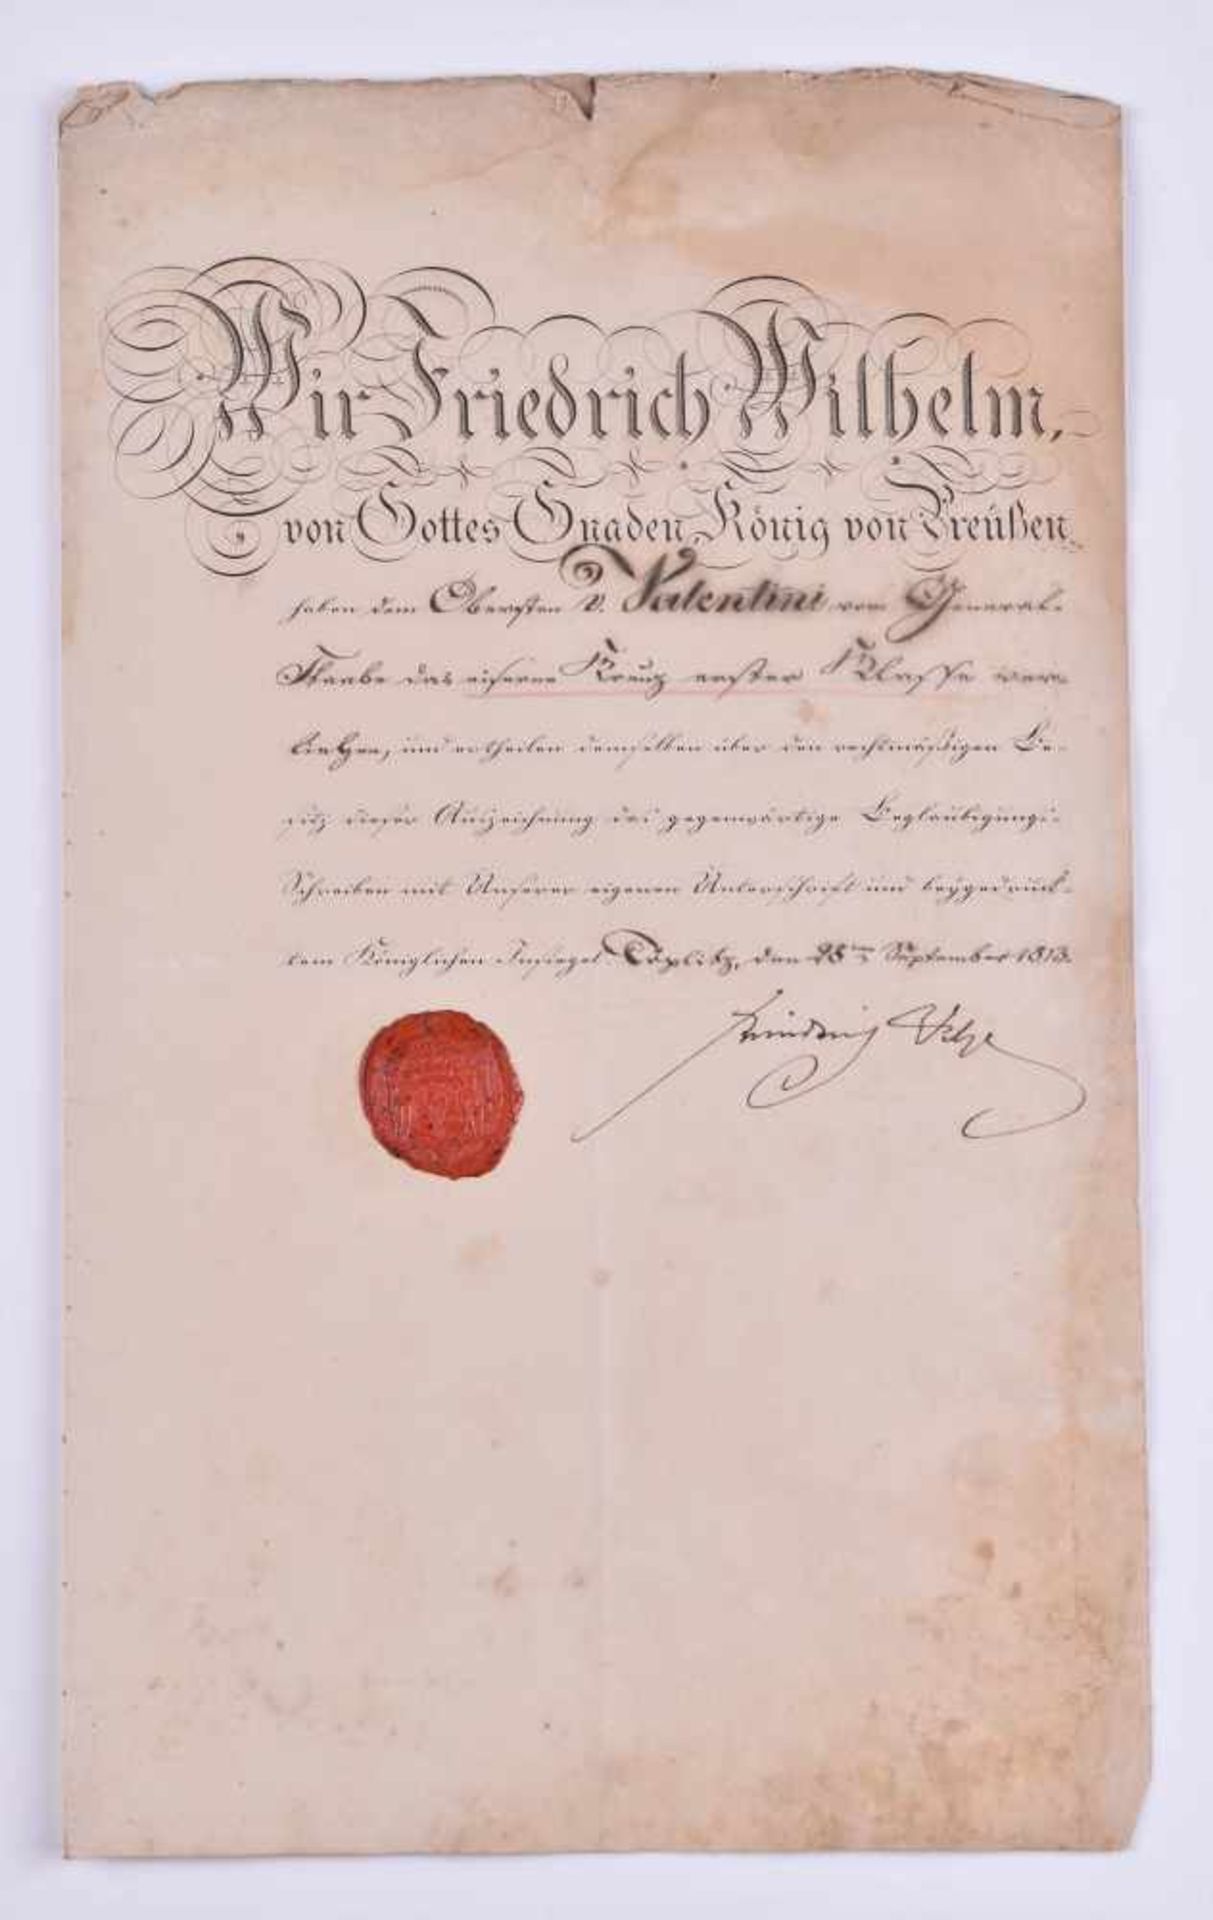 Wir Friedrich Wilhelm,
von Gottes Gnaden, König von Preüßen
haben dem Obersten v. Valentini vom General-
Staabe das eiserne Kreuz erster Klasse ver-
liehen, und ertheilen demselben über den rechtmäßigen Be-
sitz dieser Auszeichnung das gegenwärtige Beglaubigungs-
Schreiben mit Unserer eigenen Unterschrift und beygedruck-
tem Königlichen Insiegel Töplitz, den 28ten September 1813.
Friedrich Wilhelm